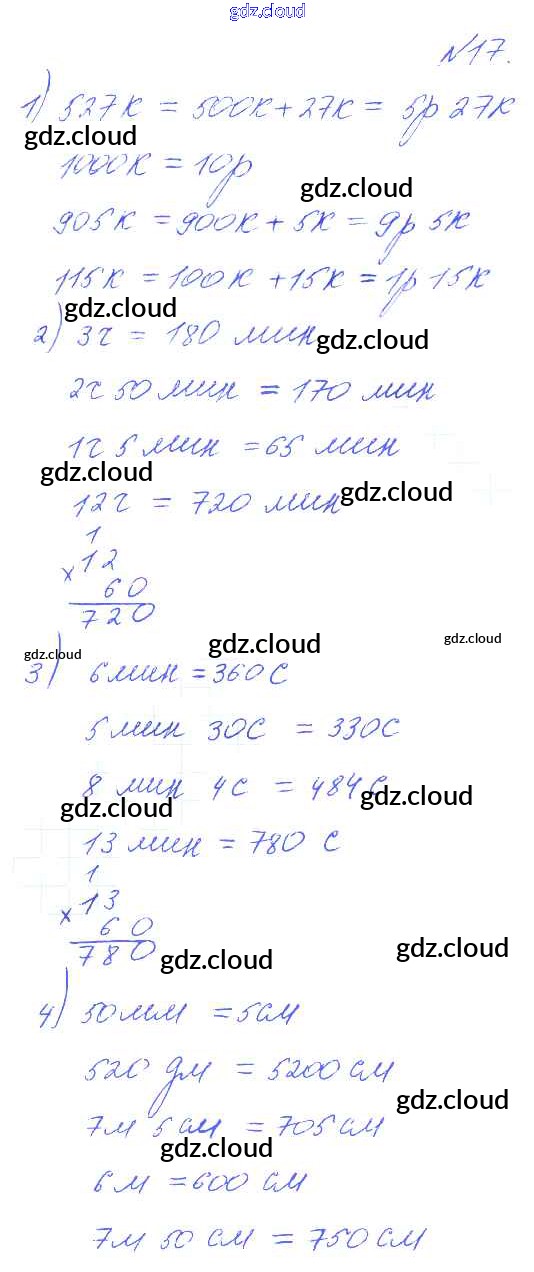 gdz.cloud
№17.
1) 527к = 500к + 27к = 5р 27к
gdz.cloud
1000к = 10р
gdz.cloud
905к = 900к + 5к = 9р 5к
115к = 100к + 15к = 1р 15к
gdz.cloud
2) 3ч = 180 мин
gdz.cloud
2ч 50 мин = 170 мин
1ч 5 мин = 65 мин
gdz.cloud
12ч = 720 мин
gdz.cloud
1
× 12
60
720
gdz.cloud
gdz.cloud
gdz.cloud
3) 6 мин = 360 с
5 мин 30с = 330с
8 мин 4с = 484с
gdz.cloud
gdz.cloud
13 мин = 780 с
1
× 13
60
780
gdz.cloud
gdz.cloud
4) 50мм = 5см
520 дм = 5200 см
gdz.cloud
7м 5 см = 705 см
gdz.cloud
6м = 600 см
7м 50 см = 750 см